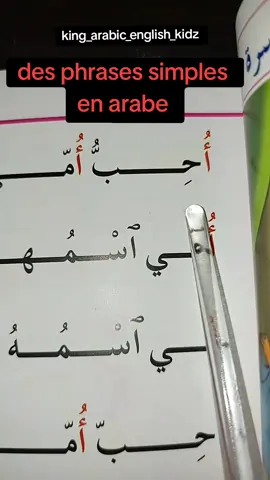 king_arabic_english_kidz
des phrases simples
en arabe
أُحِبُّ أُمّـ
أُمّي ٱسْمُهـ
ـي ٱسْمُهُ
ـحِبّ أُمّـ